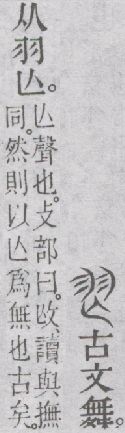 古文舞。
从羽亾。
亾聲也。攴部曰。、讀與撫
同。然則以亾爲無也古矣。